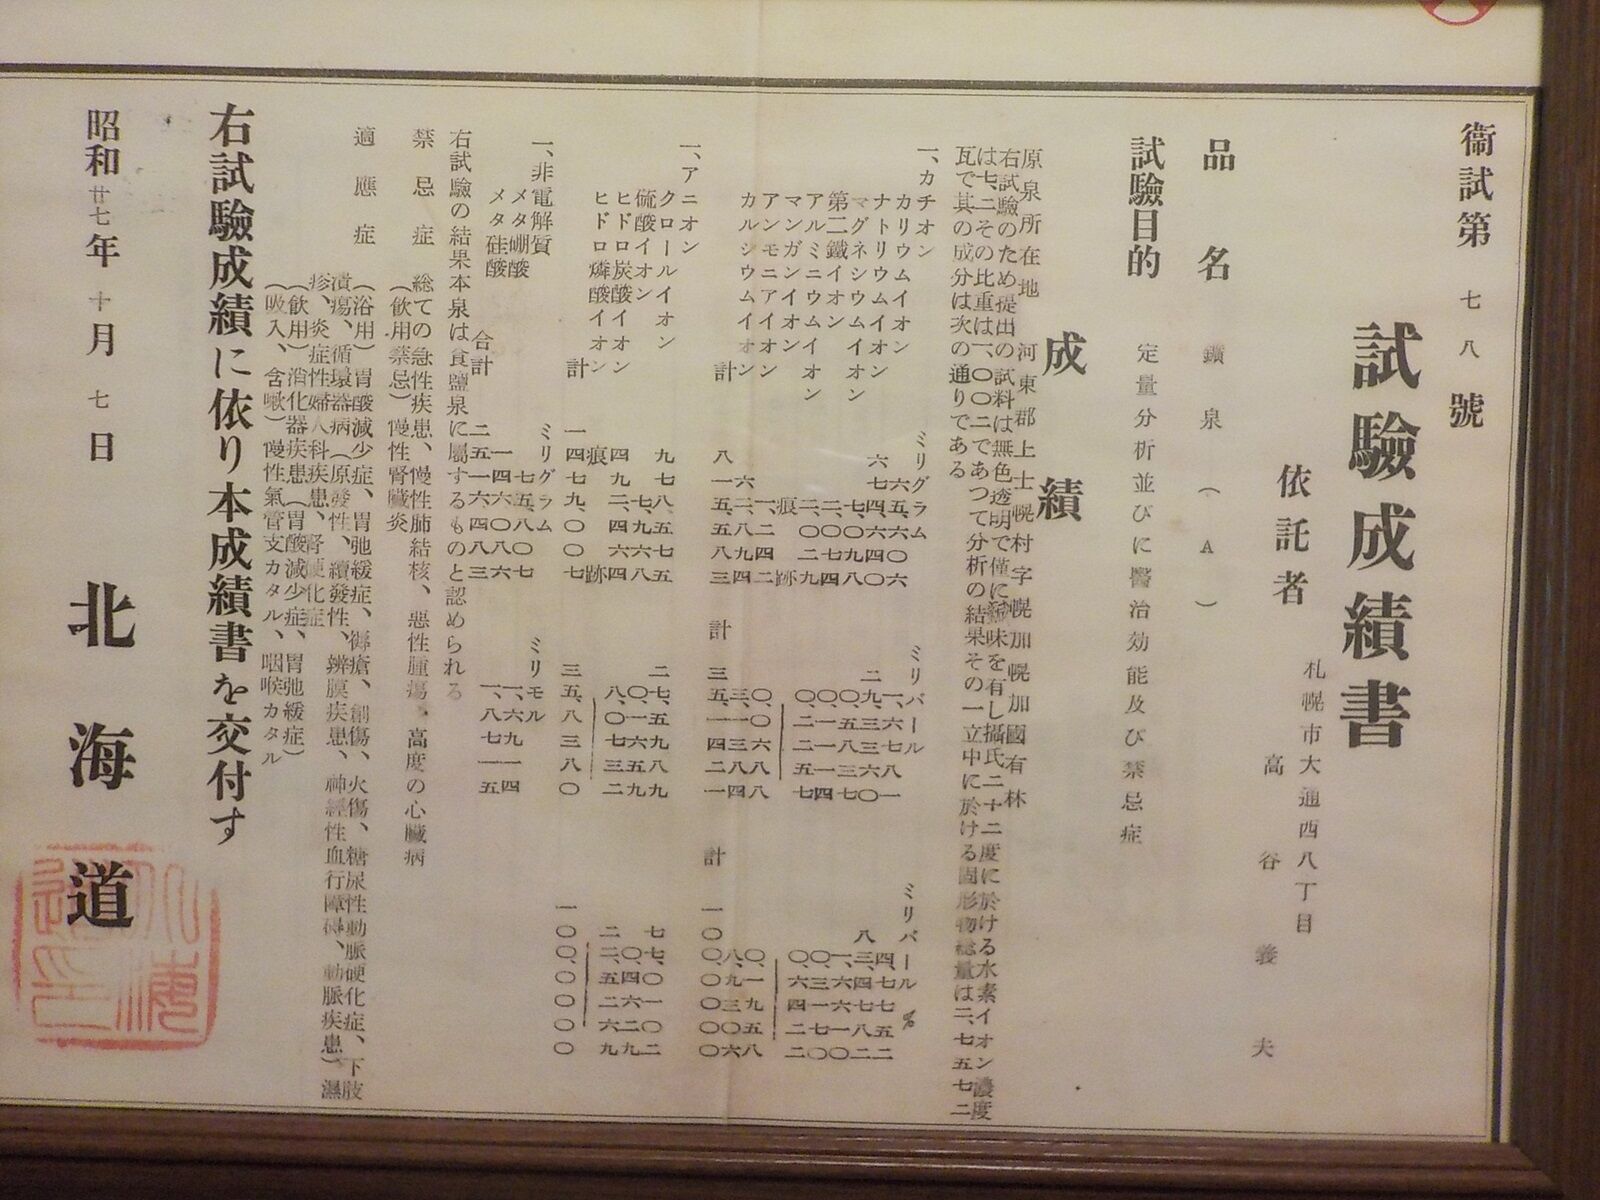 衞試第七八號
試驗成績書
依託者 札幌市大通西八丁目
高谷義夫
品名 鑛泉(A)
試驗目的 定量分析並びに醫治効能及び禁忌症
成績
原泉所在地 河東郡上士幌村字幌加幌加國有林
右試驗のため提出の試料は無色透明で僅に鹹味を有し攝氏二十二度に於ける水素イオン濃度
は七、二その比重は一、〇〇二であつて分析の結果その一立中に於ける固形物総量は二、七五七二
瓦で其の成分は次の通りである
一、カチオン ミリグラム ミリバール ミリバール%
カリウムイオン 六五、六〇六 一、六七八一 四、七七五二
ナトリウムイオン 六七四、六四〇 二九、三三六〇 八三、四七八二
マグネシウムイオン 七、〇九八
第二鐵イオン
アルミニウムイオン
マンガンイオン 痕跡
アンモニアイオン 一、二四二
カルシウムイオン 六二、八九四
計 八一五、五八三 計 三五、一四二一 計 一〇〇、〇〇〇〇
一、アニオン
クロールイオン 九七八、五七五 二七、五九八九 七七、〇一〇二
硫酸イオン 七、九六八
ヒドロ炭酸イオン 四九二、四六四 八、〇七三二 二二、五二六九
ヒドロ燐酸イオン 痕跡
計 一四七九、〇〇七 三五、八三八〇 一〇〇、〇〇〇〇
一、非電解質 ミリグラム ミリモル
メタ硼酸 七五、八〇七
メタ硅酸 一四六、〇八六
合計 二五一六、四八三
右試驗の結果本泉は食鹽泉に屬するものと認められる
禁忌症 総ての急性疾患、慢性肺結核、惡性腫瘍、高度の心臓病
(飲用禁忌)慢性腎臓炎
適應症 (浴用)胃酸減少症、胃弛緩症、褥瘡、創傷、火傷、糖尿性動脈硬化症、下肢
潰瘍、循環器病(原發性、續發性、辨膜疾患、神經性血行障礙、動脈疾患)濕
疹、炎症性婦人科疾患、腎硬化症
(飲用)消化器疾患(胃酸減少症、胃弛緩症)
(吸入、含嗽)慢性氣管支カタル、咽喉カタル
右試驗成績に依り本成績書を交付す
昭和廿七年十月七日
北海道